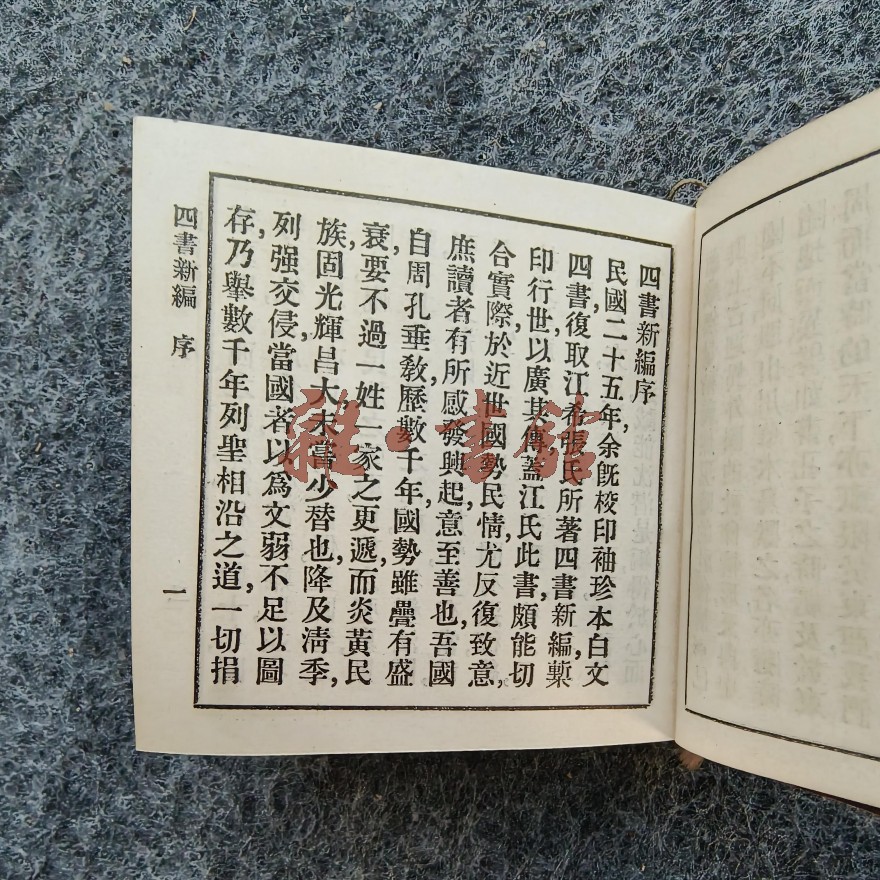 四書新編序
民國二十五年,余旣校印袖珍本白文
四書,復取江希張氏所著四書新編槧
印行世,以廣其傳,蓋江氏此書,頗能切
合實際,於近世國勢民情,尤反復致意,
庶讀者有所感發興起,意至善也,吾國
自周孔垂敎,歷數千年,國勢雖疊有盛
衰,要不過一姓一家之更遞,而炎黃民
族,固光輝昌大,未嘗少替也,降及淸季,
列强交侵,當國者以爲文弱不足以圖
存,乃擧數千年列聖相沿之道,一切捐
四書新編 序
一
雅〇書館